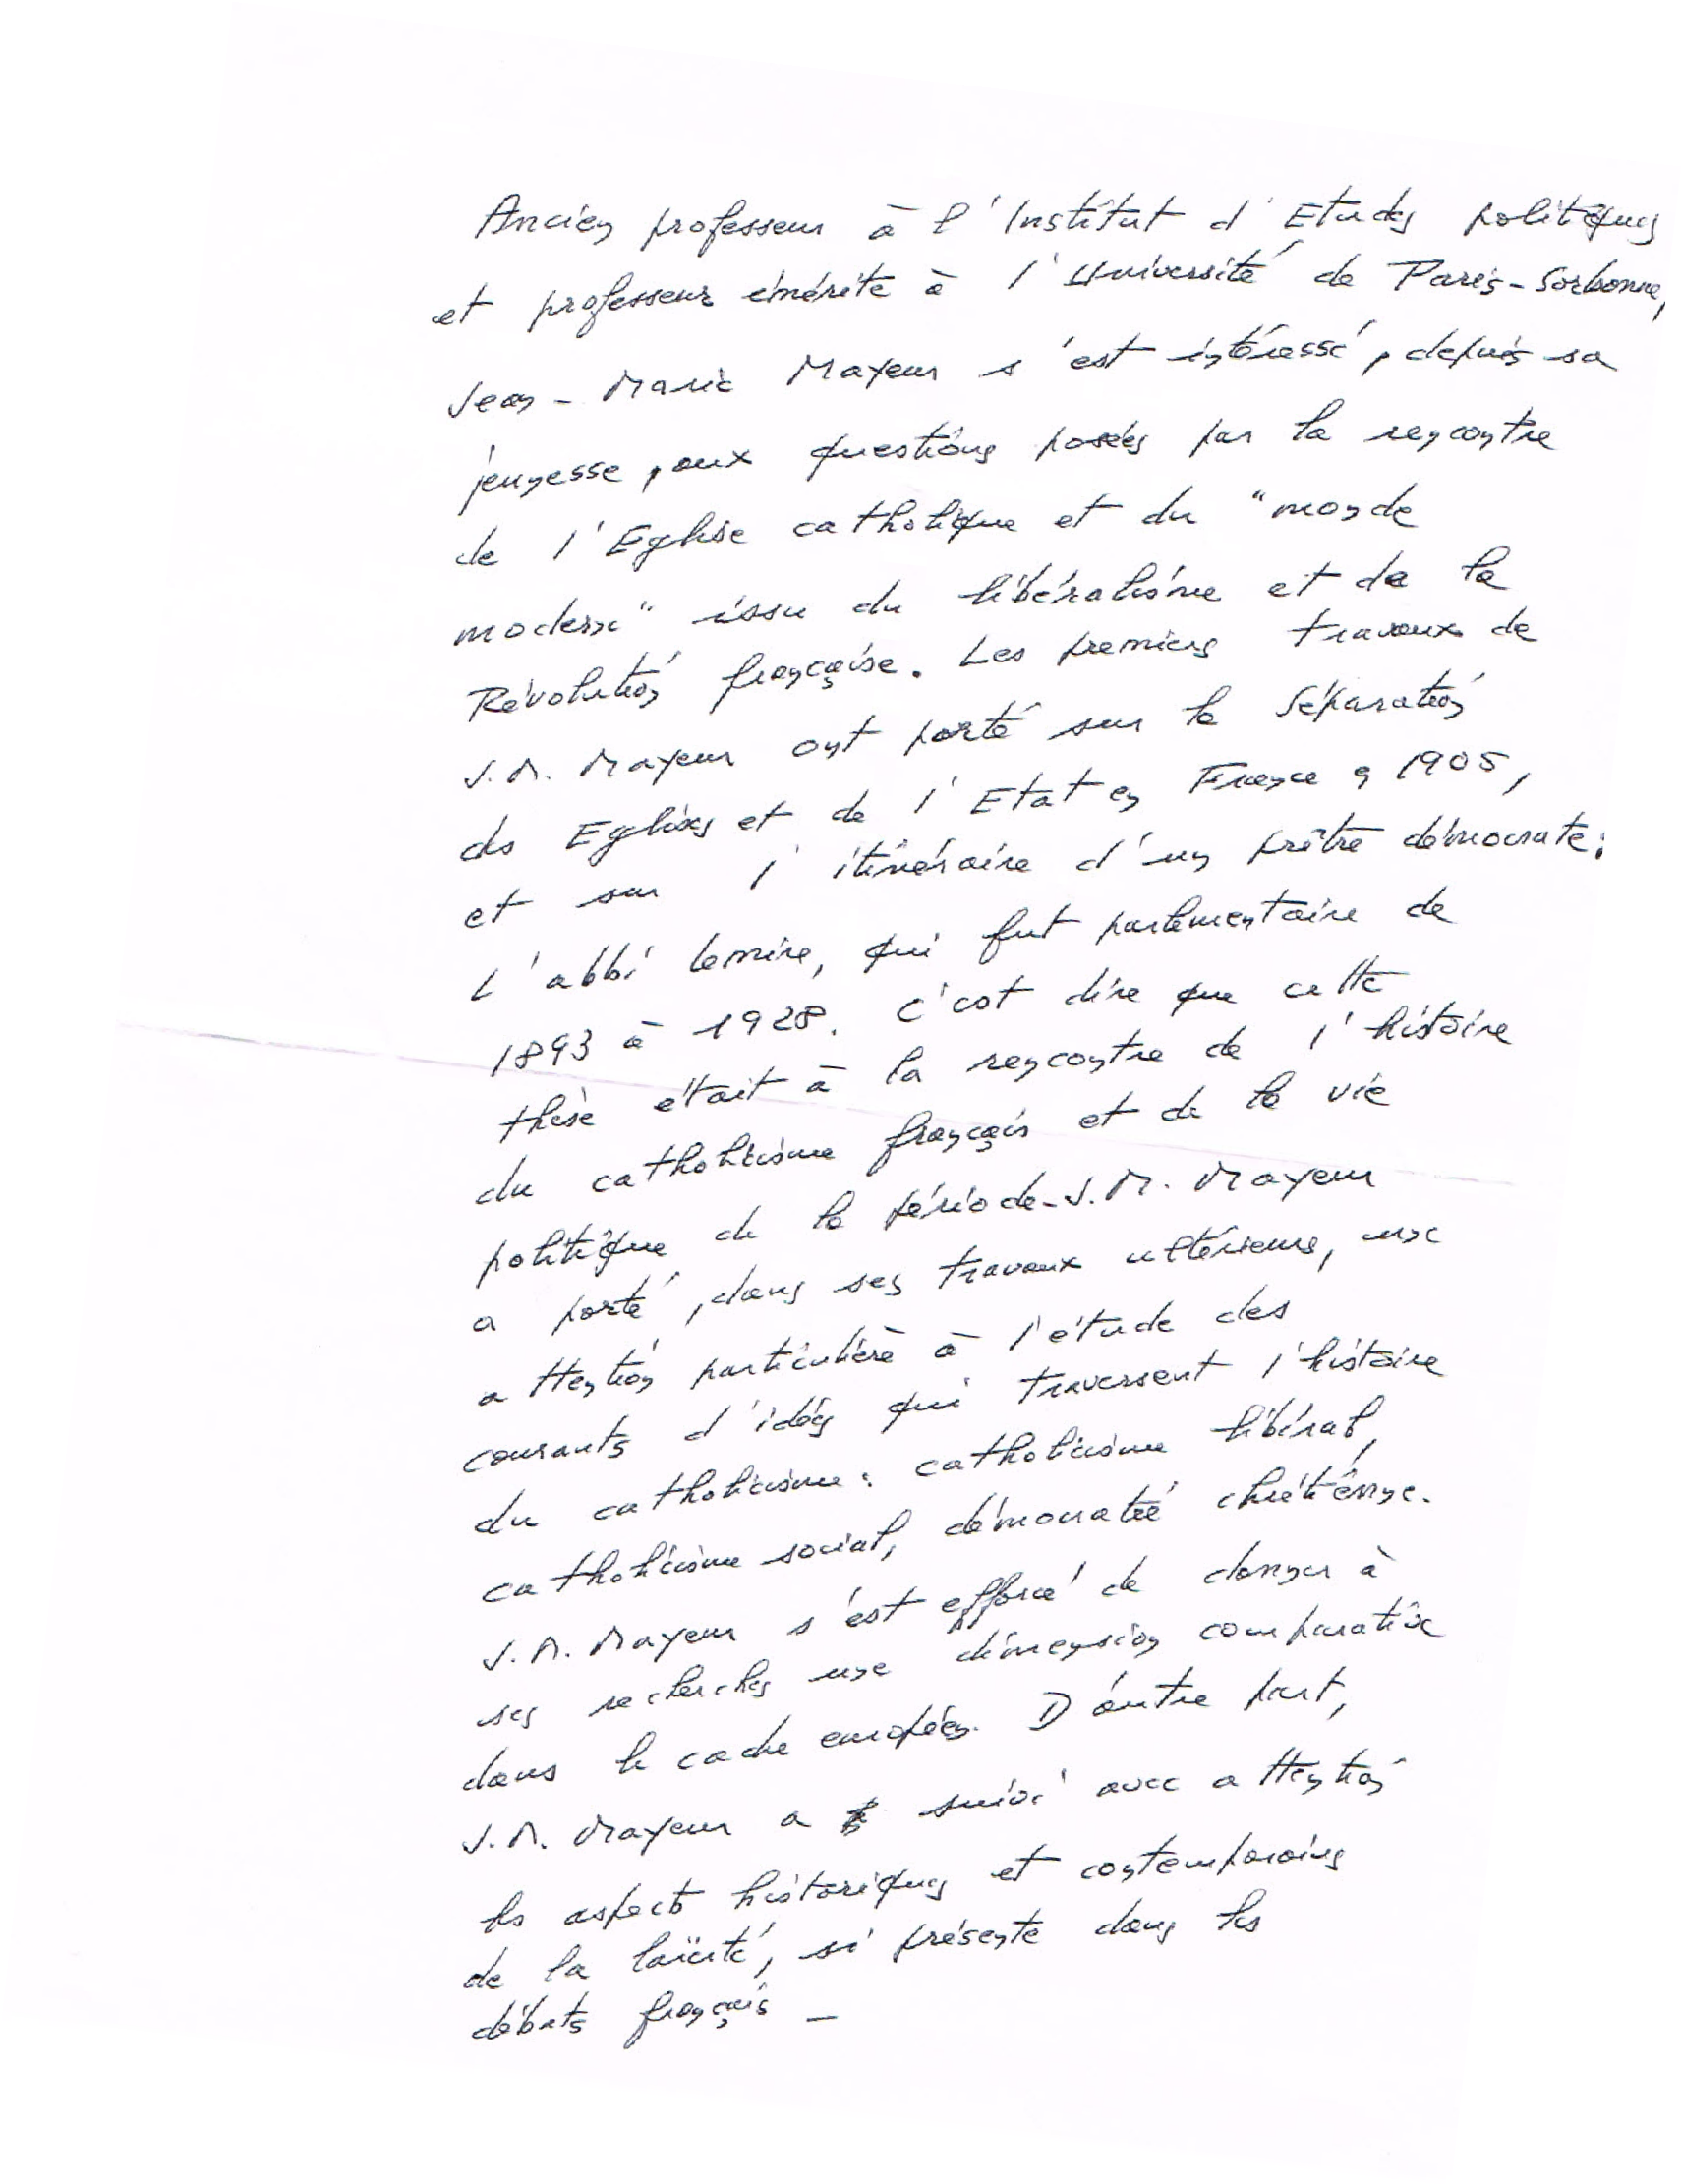 Ancien professeur à l'Institut d'Etudes politiques
et professeur émérite à l'Université de Paris-Sorbonne,
Jean-Marie Mayeur s'est intéressé, depuis sa
jeunesse, aux questions posées par la rencontre
de l'Eglise catholique et du "monde
moderne" issu du libéralisme et de la
Révolution française. Les premiers travaux de
J.M. Mayeur ont porté sur la Séparation
des Eglises et de l'Etat en France en 1905,
et sur l'itinéraire d'un prêtre démocrate :
L'abbé Lemire, qui fut parlementaire de
1893 à 1928. C'est dire que cette
thèse était à la rencontre de l'histoire
du catholicisme français et de la vie
politique de la période - J.M. Mayeur
a porté, dans ses travaux ultérieurs, une
attention particulière à l'étude des
courants d'idées qui traversent l'histoire
du catholicisme : catholicisme libéral,
catholicisme social, démocratie chrétienne.
J.M. Mayeur s'est efforcé de donner à
ses recherches une dimension comparative
dans le cadre européen. D'autre part,
J.M. Mayeur a suivi avec attention
les aspects historiques et contemporains
de la laïcité, si présente dans les
débats français -